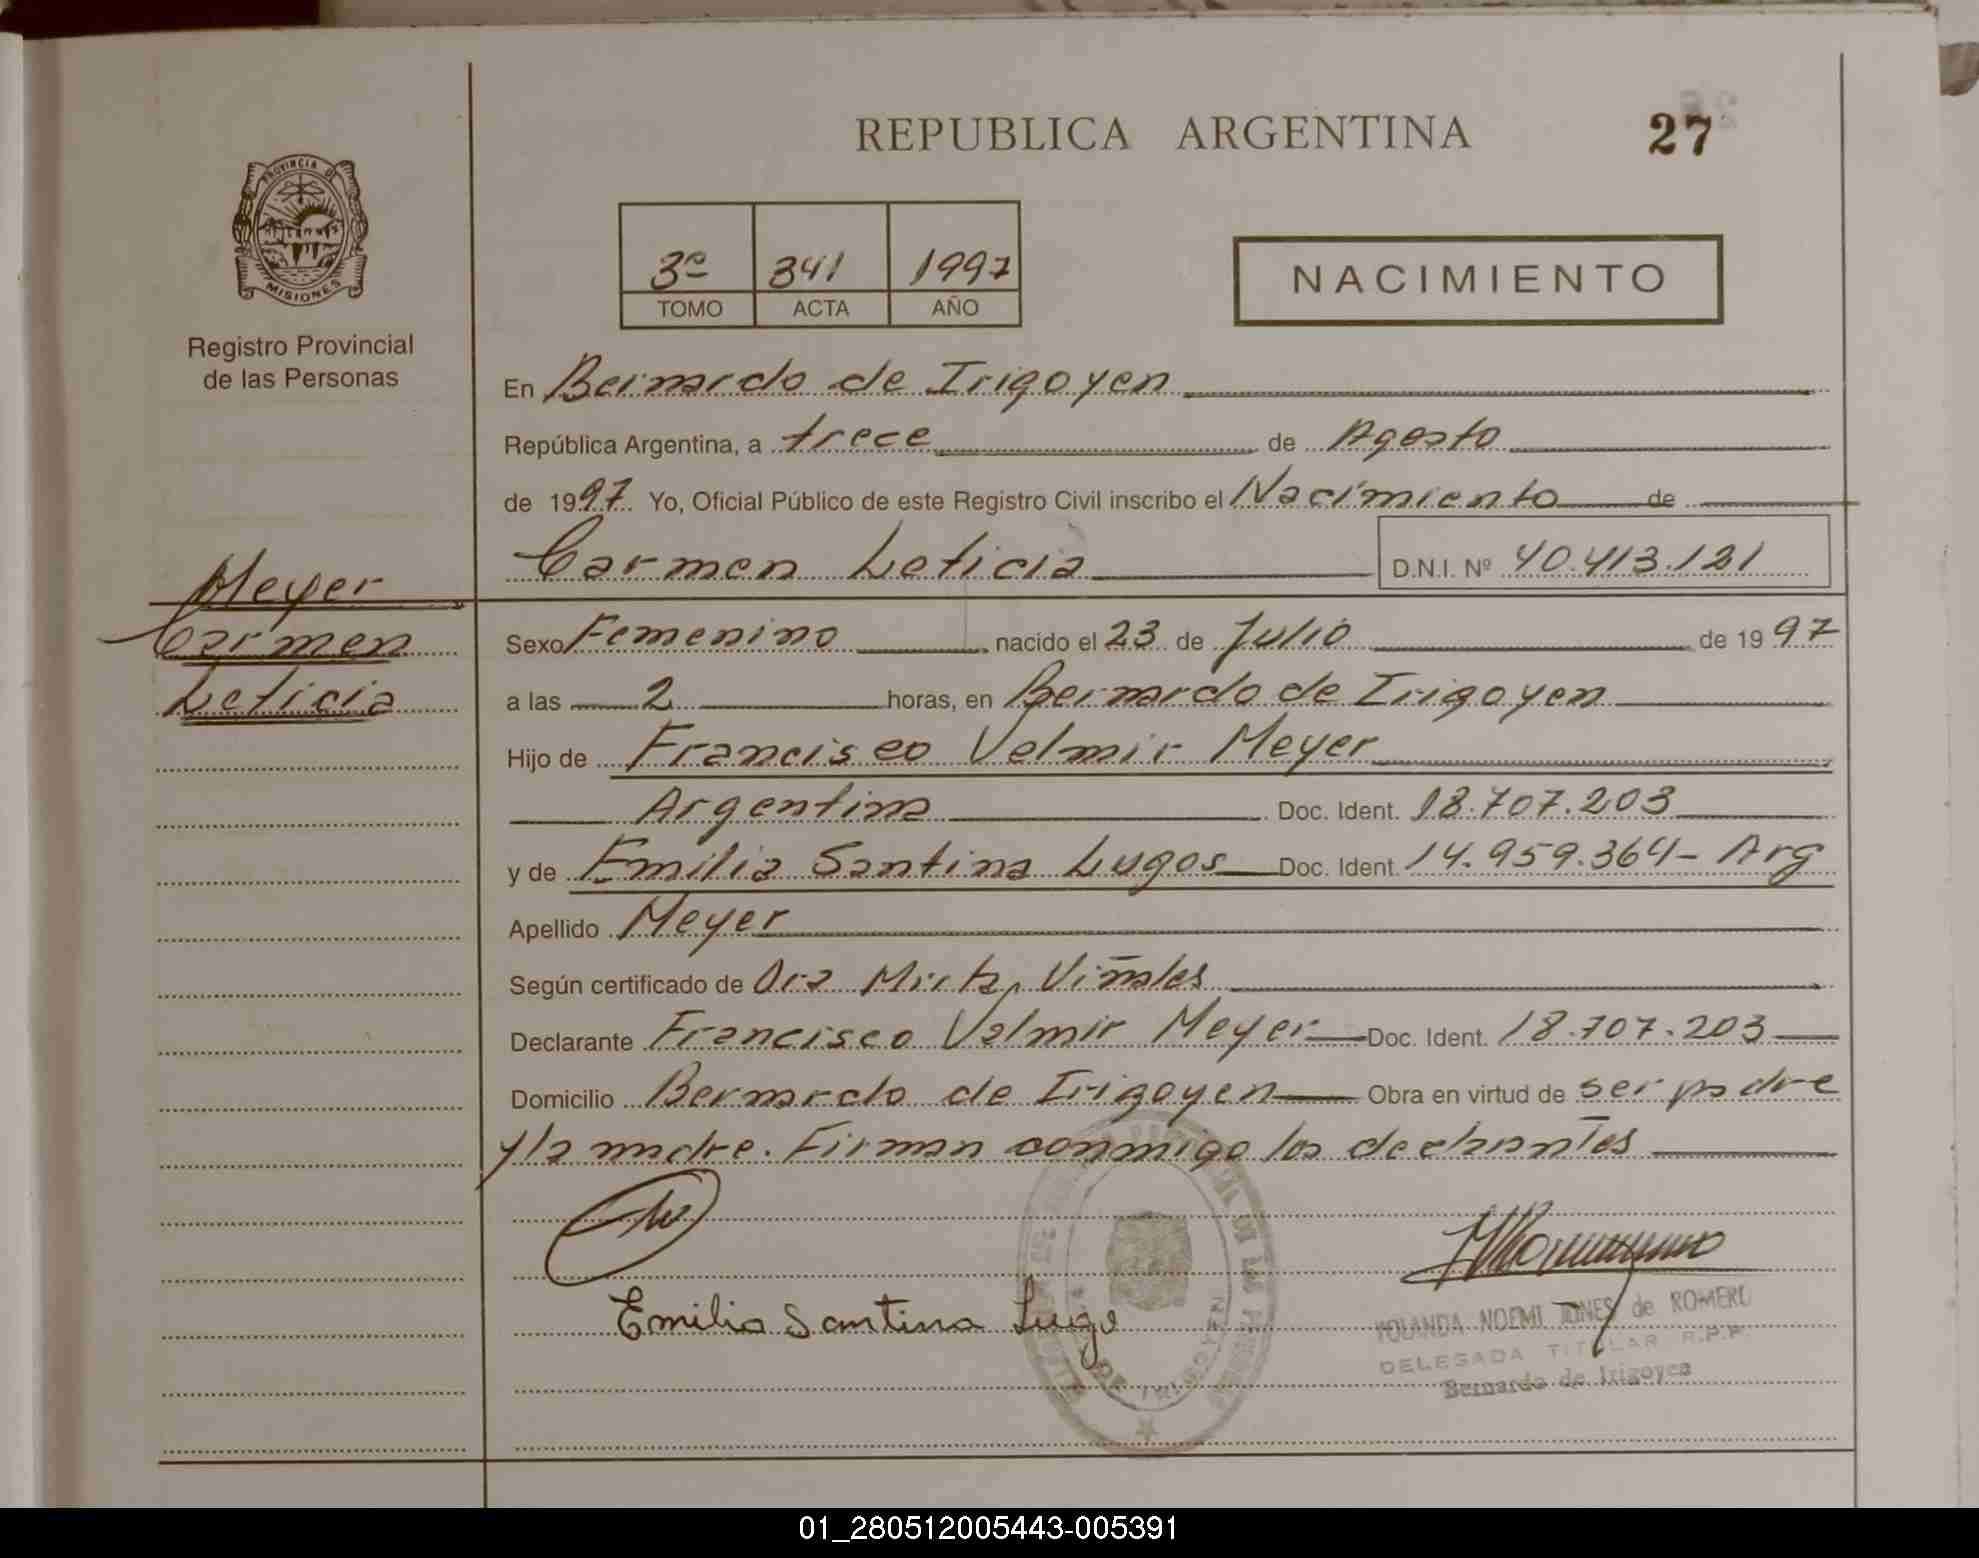 REPUBLICA ARGENTINA
27
PROVINCIA D
MISIONES
Registro Provincial
de las Personas
3º 341 1997
TOMO ACTA AÑO
NACIMIENTO
En Bernardo de Irigoyen
República Argentina, a trece de Agosto
de 1997 Yo, Oficial Público de este Registro Civil inscribo el Nacimiento de
Carmen Leticia D.N.I. Nº 40.413.121
Meyer
Carmen
Leticia
Sexo Femenino nacido el 23 de Julio de 1997
a las 2 horas, en Bernardo de Irigoyen
Hijo de Francisco Velmir Meyer
Argentina Doc. Ident. 18.707.203
y de Emilia Santina Lugos Doc. Ident. 14.959.364 - Arg
Apellido Meyer
Según certificado de Dra Mirta Viñales
Declarante Francisco Valmir Meyer Doc. Ident. 18.707.203
Domicilio Bernardo de Irigoyen Obra en virtud de ser padre
y la madre. Firman conmigo los declarantes
Emilia Santina Lugo
YOLANDA NOEMI de ROMERO
DELEGADA TITULAR R.P.P.
Bernardo de Irigoyen
DE IRIGOYEN
01_280512005443-005391